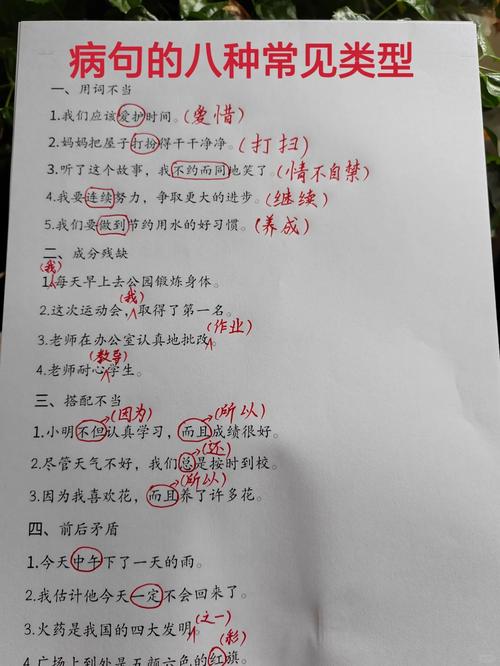 病句的八种常见类型
一、用词不当
1.我们应该爱护时间。(爱惜)
2.妈妈把屋子打扮得干干净净。(打扫)
3.听了这个故事，我不约而同地笑了。(情不自禁)
4.我要连续努力，争取更大的进步。(继续)
5.我们要做到节约用水的好习惯。(养成)
二、成分残缺
(我)
1.每天早上去公园锻炼身体。
(我)
2.这次运动会，取得了第一名。
(作业)
3.老师在办公室认真地批改。
(教导)
4.老师耐心学生。
三、搭配不当
(因为) (所以)
1.小明不但认真学习，而且成绩很好。
(还)
2.尽管天气不好，我们总是按时到校。
(所以)
3.因为我喜欢花，而且养了许多花。
四、前后矛盾
1.今天中午下了一天的雨。
2.我估计他今天一定不会回来了。
(之一)
3.火药是我国的四大发明。
(彩)
4.广场上到处是五颜六色的红旗。